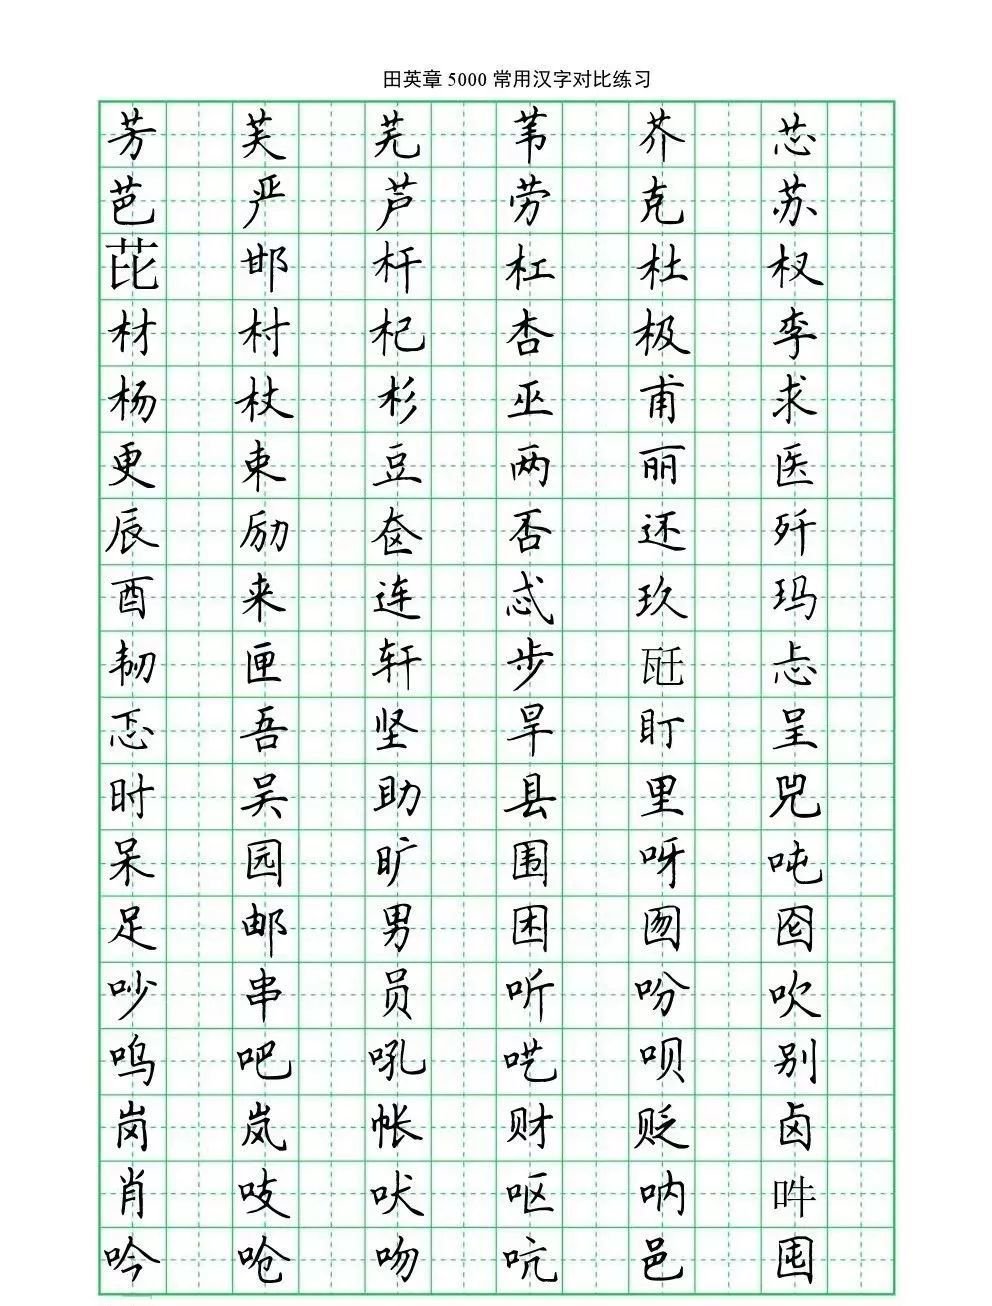 田英章 5000 常用汉字对比练习
芳 芙 芜 苇 芥 芯
芭 严 芦 劳 克 苏
芘 邯 杆 杠 杜 杈
材 村 杞 杏 极 李
杨 杖 杉 巫 甫 求
更 束 豆 两 丽 医
辰 励 奁 否 还 歼
酉 来 连 忒 玖 玛
韧 匣 轩 步 瓩 忐
忑 吾 坚 旱 盯 呈
时 吴 助 县 里 兕
呆 园 旷 围 呀 吨
足 邮 男 困 囫 囵
吵 串 员 听 吩 吹
呜 吧 吼 呓 呗 别
岗 岚 帐 财 贬 卤
肖 吱 吠 呕 呐 吽
吟 呛 吻 吭 邑 囤